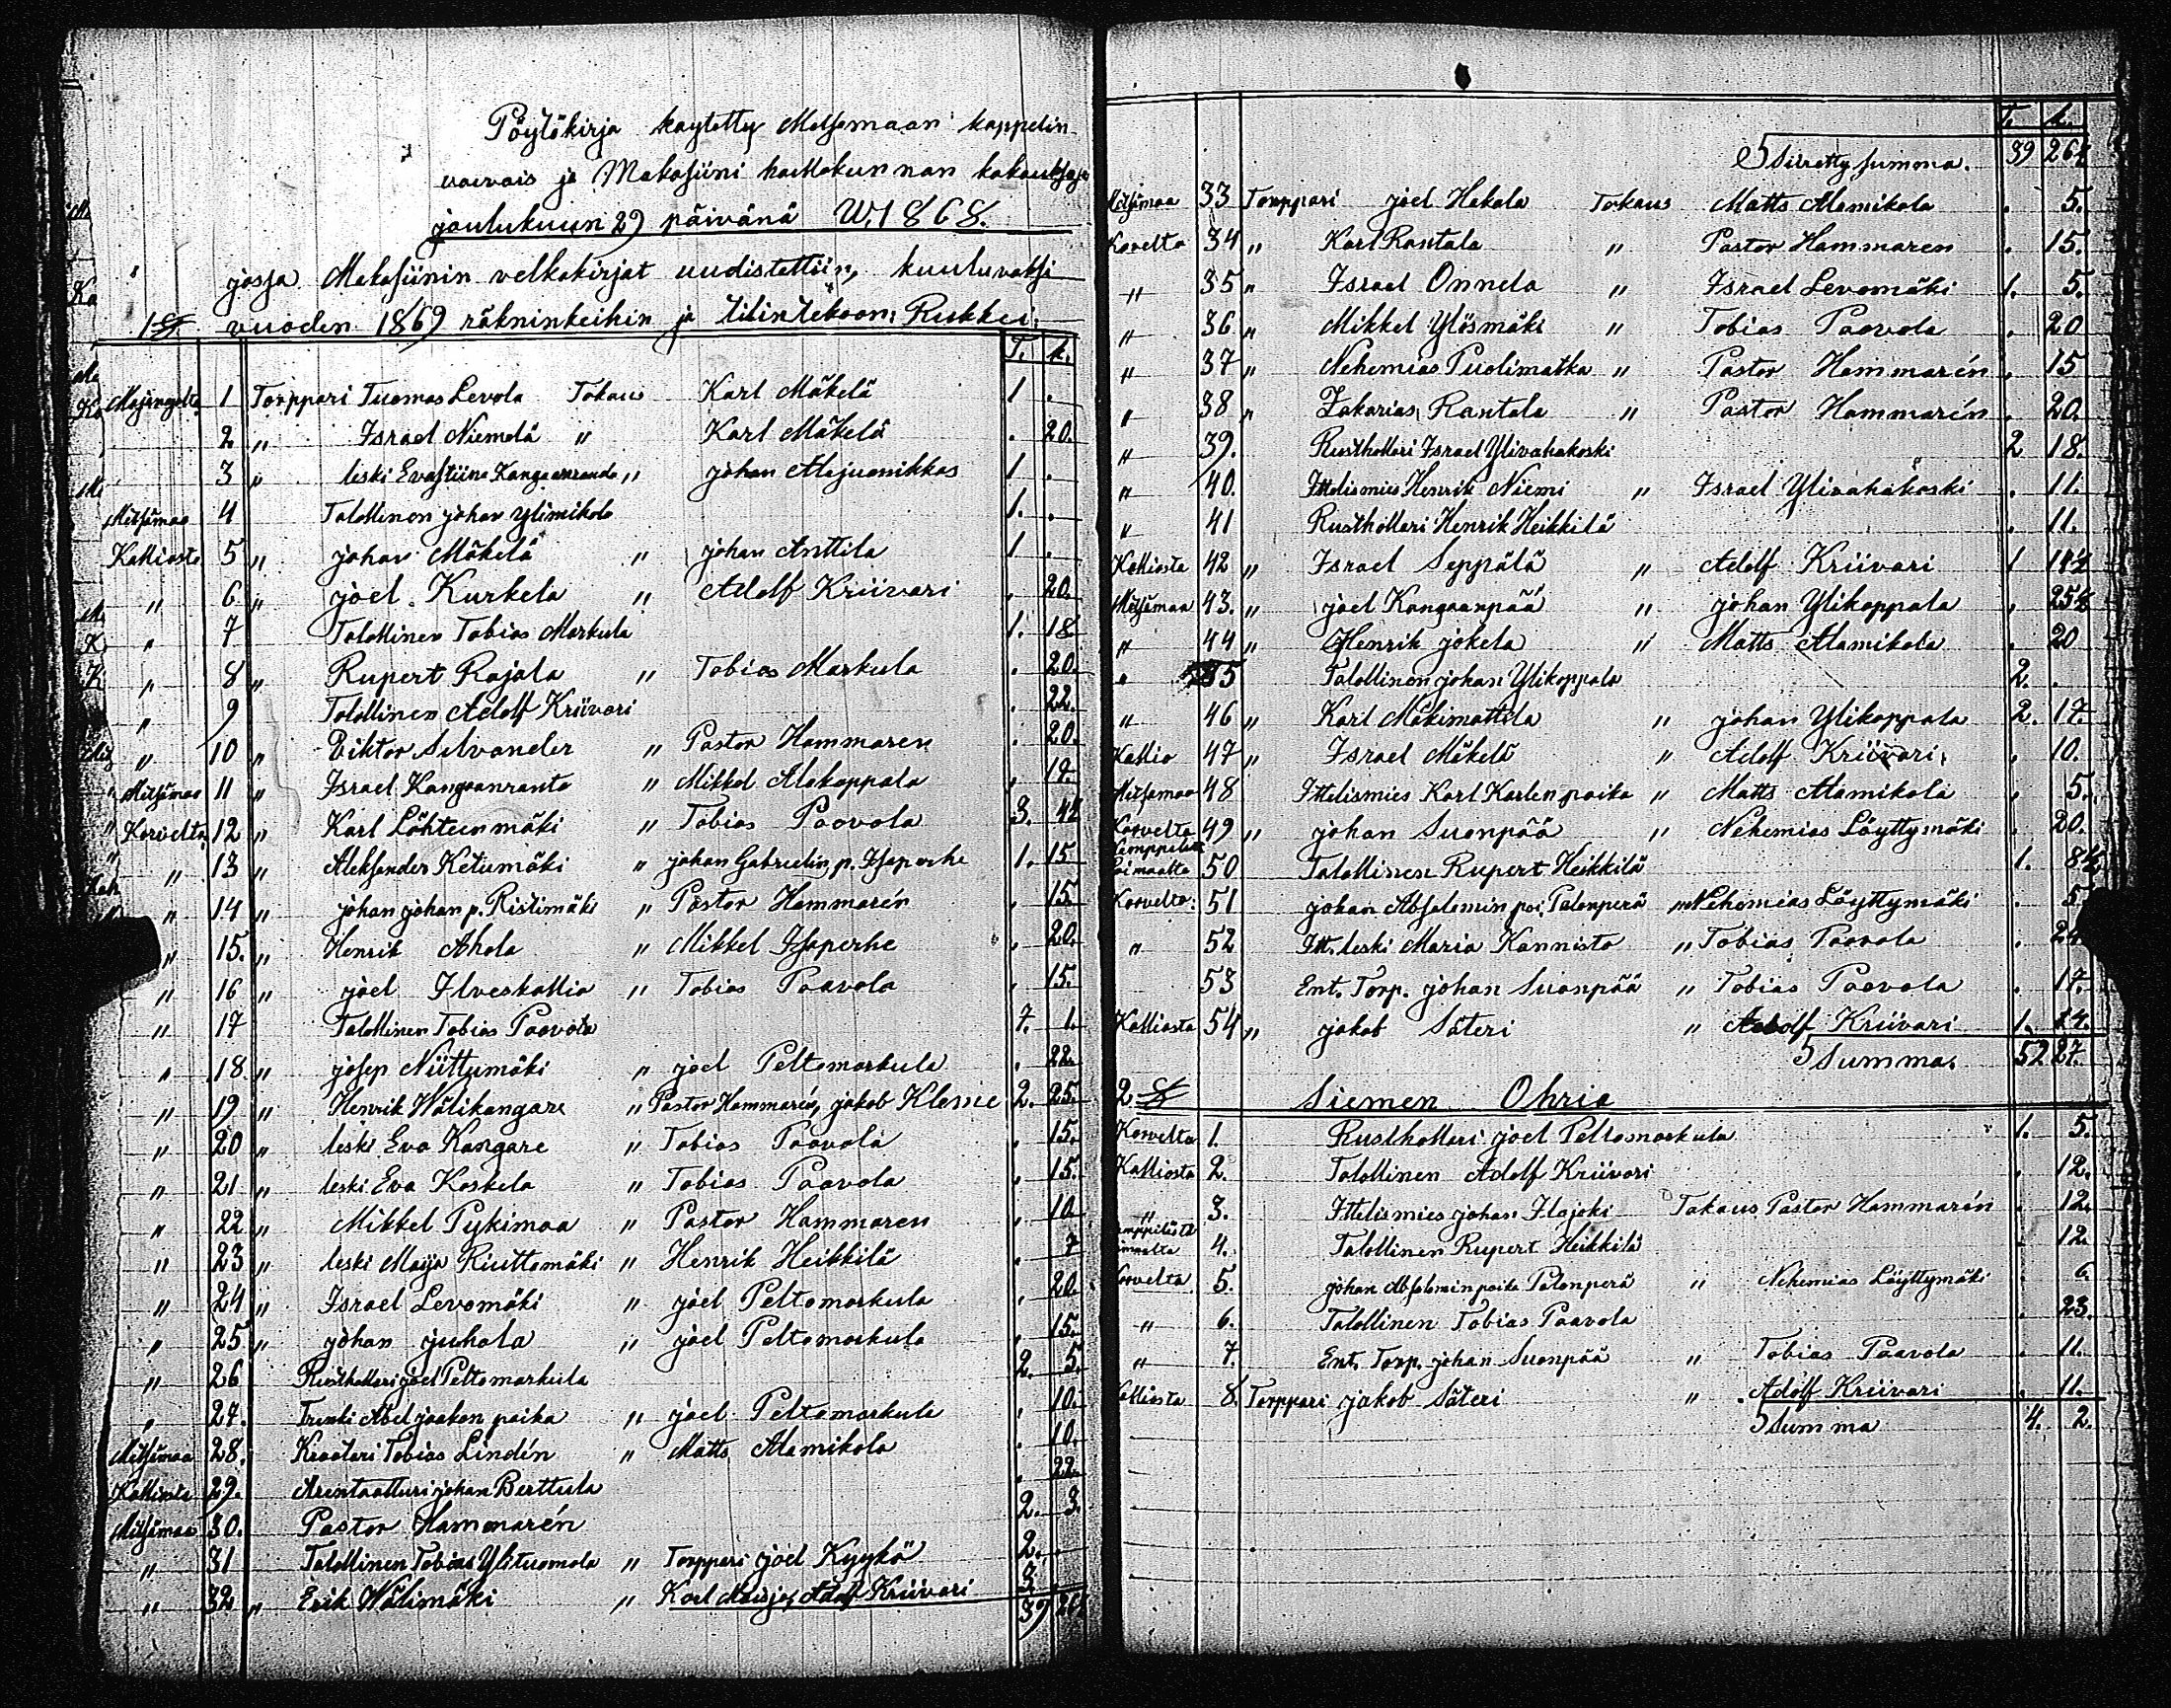 Pöytäkirja käytetty Metsämaan kappelin
vaivais ja Makasiini hallakunnan kokouksesa
joulukuun 29 päivänä W. 1868.
jossa Makasiinin velkakirjat uudistettiin, kuuluvaksi
1 § vuoden 1869 räkninkeihin ja tilintekoon: Rukkei:
T. k.
1 Torppari Tuomas Levola Takaus Karl Mäkelä 1 .
2 „ Israel Niemelä „ Karl Mäkelä . 20.
3 „ leski Evastiina Kangaanranda „ johan Alajuonikkas 1 .
Metsämaa 4 Talollinen johan ylimikola 1. .
Kalliosta 5 „ johan Mäkelä „ johan Anttila 1 .
„ 6 „ joel Kurkela „ Adolf Kriivari . 20.
„ 7 Talollinen Tobias Markula 1. 18.
„ 8 „ Rupert Rajala „ Tobias Markula . 20.
„ 9 Talollinen Adolf Kriivari . 22.
„ 10 „ Viktor Silvander „ Pastor Hammaren . 20.
Metsämaa 11 „ Israel Kangaanranta „ Mikkel Alakappala .
Korvelta 12 „ Karl Lähteenmäki „ Tobias Paavola 3.
„ 13 „ Aleksander Ketumäki „ johan Gabrielin p. Isoperhe 1. 15
„ 14 „ johan johan p. Ristimäki „ Pastor Hammarén . 15.
„ 15. „ Henrik Ahola „ Mikkel Isoperhe . 20.
„ 16 „ joel Ilveskallio „ Tobias Paavola . 15.
„ 17 Talollinen Tobias Paavola 7. 1.
„ 18. „ josep Niittumäki „ joel Peltomarkula . 22.
„ 19 „ Henrik Wälikangare „ Pastor Hammarén, jakob Klemie 2. 25.
„ 20 „ leski Eva Kangare „ Tobias Paavola . 15.
„ 21 „ leski Eva Koskela „ Tobias Paavola . 15.
„ 22 „ Mikkel Pykimaa „ Pastor Hammaren . 10
„ 23 „ leski Maija Riuttamäki „ Henrik Heikkilä . 7
„ 24 „ Israel Levomäki „ joel Peltomarkula . 20.
„ 25 „ johan juhola „ joel Peltomarkula . 15.
„ 26 Rusthollari joel Peltomarkula 2. 5.
„ 27. Trenki Abel jaakon poika „ joel Peltomarkula . 10.
Metsämaa 28. Kraatari Tobias Lindén „ Matts Alamikola . 10.
Kalliosta 29. Arentaatturi johan Berttula . 22.
Metsämaa 30. Pastor Hammarén 2. 3.
„ 31 Talollinen Tobias Ylituomola „ Torppari joel Kyykö 2.
„ 32 „ Erik Wälimäki „ Karl Adolf Kriivari 3
39 26½
T. k.
Siirretty summa. 39 26½
Metsämaa 33 Torppari joel Hakala Takaus Matts Alamikola . 5.
Korvelta 34 „ Karl Rantala „ Pastor Hammaren . 15.
„ 35 „ Israel Onnela „ Israel Levomäki 1. 5.
„ 36 „ Mikkel Ylösmäki „ Tobias Paavola . 20
„ 37 „ Nehemias Puolimatka „ Pastor Hammarén . 15
„ 38 „ Zakarias Rantala „ Pastor Hammarén . 20.
„ 39. Rusthollari Israel Ylivahakoski 2 18.
„ 40. Ittelismies Henrik Niemi „ Israel Ylivahakoski . 11.
„ 41 Rusthollari Henrik Heikkilä . 11.
Kalliosta 42 „ Israel Seppälä „ Adolf Kriivari 1 11½
Metsämaa 43. „ joel Kangaanpää „ johan Ylikappala . 25½
„ 44 „ Henrik jokela „ Matts Alamikola . 20
„ 45 Talollinen johan Ylikappala 2. .
„ 46 „ Karl Mäkimattila „ johan Ylikappala 2. 17.
Kallio 47 „ Israel Mäkelä „ Adolf Kriivari . 10.
Metsämaa 48 Ittelismies Karl Karlen poika „ Matts Alamikola . 5.
Korvelta 49 „ johan Suonpää „ Nehemias Löyttymäki . 20.
50 Talollinen Rupert Heikkilä 1. 8½
Korvelta: 51 johan Absalomin poi. Palonperä „ Nehemias Löyttymäki . 5
„ 52 Itt. leski Maria Kannisto „ Tobias Paavola .
53 Ent. Torp. johan Suonpää „ Tobias Paavola . 17.
Kalliosta 54 „ jakob Säteri „ Adolf Kriivari 1. 14.
Summa. 52 27.
2 § Siemen Ohria
Korvelta 1. Rusthollari joel Peltomarkula 1. 5.
Kalliosta 2. Talollinen Adolf Kriivari . 12.
„ 3. Ittelismies johan Ilajoki Takaus Pastor Hammarén . 12.
4. Talollinen Rupert Heikkilä . 12.
Korvelta 5. johan Absalomin poika Palonperä „ Nehemias Löyttymäki . 6.
„ 6. Talollinen Tobias Paavola . 23.
„ 7. Ent. Torp. johan Suonpää „ Tobias Paavola . 11.
Kalliosta 8. Torppari jakob Säteri „ Adolf Kriivari . 11.
Summa 4. 2.